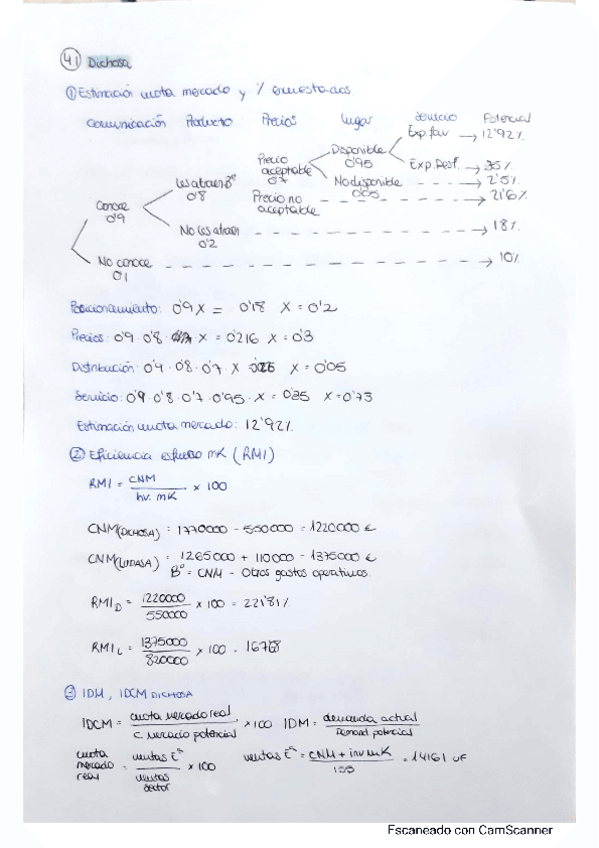 4) Dichosa
① Estimación cuota mercado y % encuestados
Comunicación Producto Precios Lugar Servicio Potencial
Exp. fav → 12'92%
Disponible
0'95
Exp. Desf. → 35%
Precio aceptable
0'7
No disponible → 2'5%
0'05
Les atrae Bº
0'8
Precio no aceptable → 21'6%
Conoce
0'9
No les atraen → 18%
0'2
No conoce → 10%
0'1
Posicionamiento: 0'9 X = 0'18 X = 0'2
Precios: 0'9 · 0'8 · X = 0'216 X = 0'3
Distribución: 0'9 · 0'8 · 0'7 · X X = 0'05
Servicio: 0'9 · 0'8 · 0'7 · 0'95 · X = 0'35 X = 0'73
Estimación cuota mercado: 12'92%
② Eficiencia esfuerzo mK (RMI)
RMI = CNM / Inv. mK × 100
CNM(DICHOSA) = 1770000 - 550000 = 1220000 €
CNM(LUDASA) = 1265000 + 110000 = 1375000 €
Bº = CNM - Otros gastos operativos
RMI D = 1220000 / 550000 × 100 = 221'81%
RMI L = 1375000 / 820000 × 100 = 167'68
③ IDM, IDCM DICHOSA
IDCM = cuota mercado real / C mercado potencial × 100 IDM = demanda actual / Demand potencial
cuota mercado real = ventas Eª / ventas sector × 100 ventas Eª = CNM + inv mK / = 14161 UF
Escaneado con CamScanner